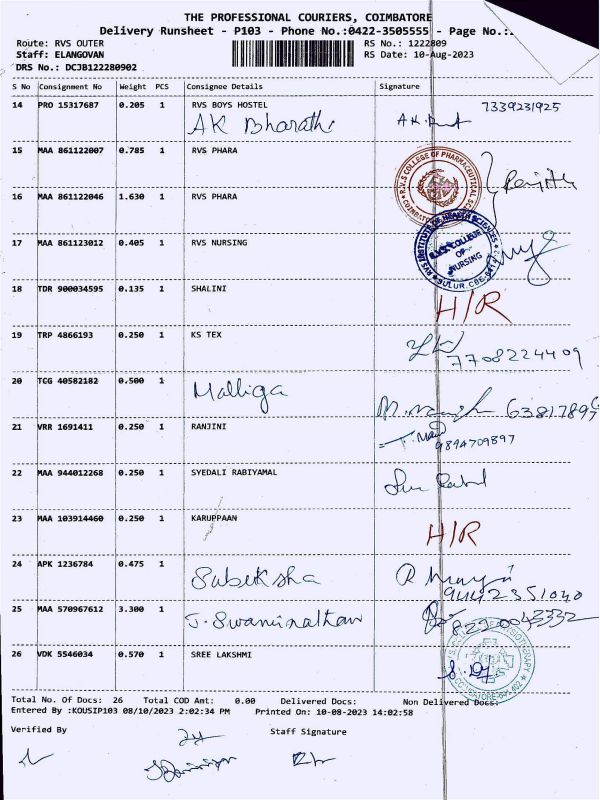 THE PROFESSIONAL COURIERS, COIMBATORE
Delivery Runsheet - P103 - Phone No.:0422-3505555 - Page No.:
Route: RVS OUTER RS No.: 1222809
Staff: ELANGOVAN RS Date: 10-Aug-2023
DRS No.: DCJB122280902
S No Consignment No Weight PCS Consignee Details Signature
14 PRO 15317687 0.205 1 RVS BOYS HOSTEL 7339231925
AK Bharathi
15 MAA 861122007 0.785 1 RVS PHARA
16 MAA 861122046 1.630 1 RVS PHARA
R.V.S COLLEGE OF PHARMACEUTICAL
17 MAA 861123012 0.405 1 RVS NURSING
RVS INSTITUTE OF HEALTH SCIENCES
R.V.S COLLEGE
OF
NURSING
SULUR, CBE-641 402
18 TDR 900034595 0.135 1 SHALINI
H/R
19 TRP 4866193 0.250 1 KS TEX
7708224409
20 TCG 40582182 0.500 1 Malliga
63817896
21 VRR 1691411 0.250 1 RANJINI
9894709897
22 MAA 944012268 0.250 1 SYEDALI RABIYAMAL
23 MAA 103914460 0.250 1 KARUPPAAN
H/R
24 APK 1236784 0.475 1 Subeksha
9442351040
25 MAA 570967612 3.300 1 J. Swaminathan
8220043332
26 VDK 5546034 0.570 1 SREE LAKSHMI
Total No. Of Docs: 26 Total COD Amt: 0.00 Delivered Docs: Non Delivered Docs:
Entered By :KOUSIP103 08/10/2023 2:02:34 PM Printed On: 10-08-2023 14:02:58
Verified By Staff Signature